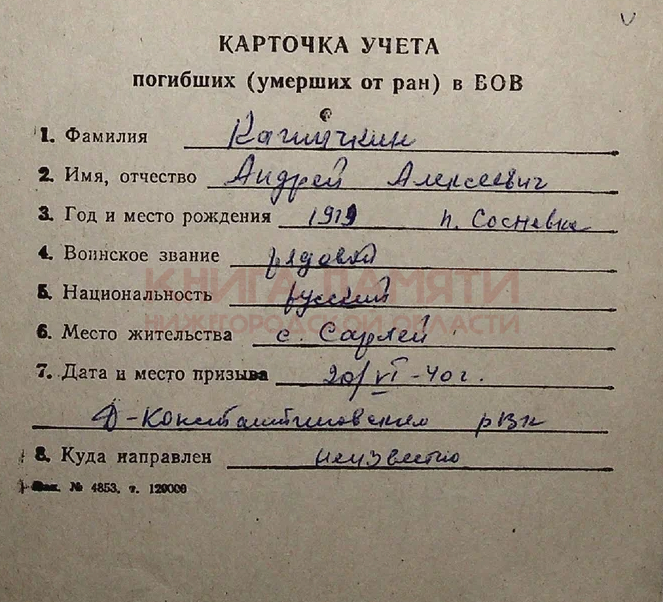 КАРТОЧКА УЧЕТА
погибших (умерших от ран) в ВОВ
1. Фамилия Качмучкин
2. Имя, отчество Андрей Алексеевич
3. Год и место рождения 1919 п. Сосневка
4. Воинское звание рядовой
КНИГА ПАМЯТИ
5. Национальность русский
НИЖЕГОРОДСКОЙ ОБЛАСТИ
6. Место жительства с. Сарлей
7. Дата и место призыва 20/VI-40 г.
Д-Константиновским рВК
8. Куда направлен неизвестно
Зак. № 4853, т. 120000